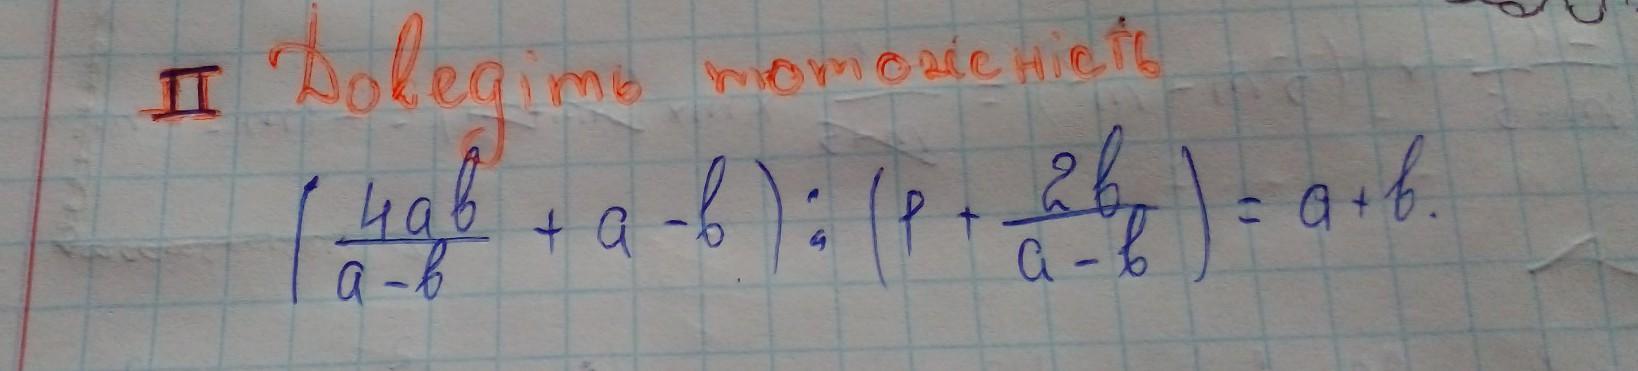 II Доведіть тотожність
(4ab/(a-b) + a - b) : (1 + 2b/(a-b)) = a + b.